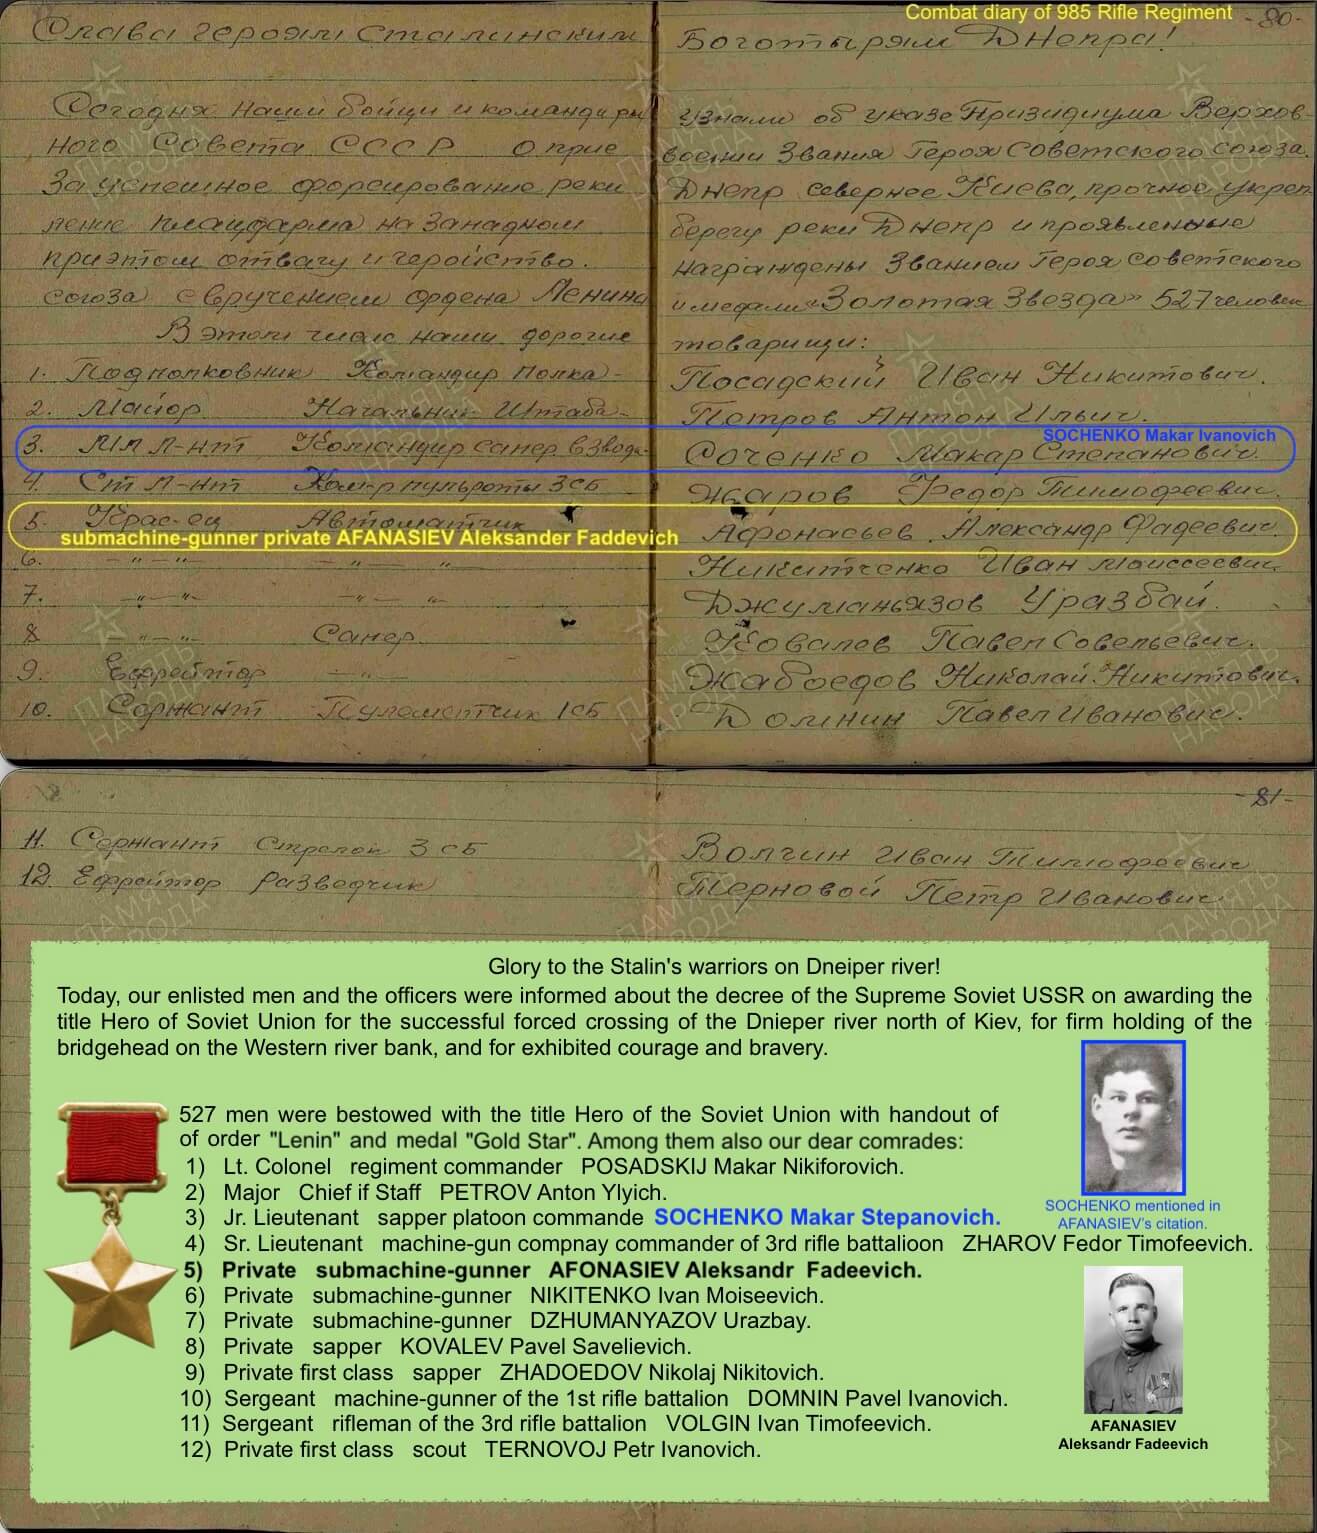 Combat diary of 985 Rifle Regiment
-80-
Слава героям Сталинским Богатырям Днепра!
Сегодня наши бойцы и командиры узнали об указе Призидиума Верхов-
ного Совета СССР о прис воении Звания Героя Советского союза.
За успешное форсирование реки Днепр севернее Киева, прочное укреп-
ление плацдарма на Западном берегу реки Днепр и проявленные
приэтом отвагу и геройство. награждены Званием Героя советского
союза с вручением ордена Ленина и медали "Золотая Звезда" 527 человек
В этом числе наши дорогие товарищи:
1. Подполковник Командир полка - Посадский Иван Никитович.
2. Майор Начальник Штаба- Петров Антон Ильич.
SOCHENKO Makar Ivanovich
3. Мл л-нт Командир сапер. взвода- Соченко Макар Степанович.
4. Ст л-нт Ком-р пульроты 3 СБ Жаров Федор Тимофеевич.
5. Крас-ец Автоматчик Афонасьев Александр Фадеевич.
submachine-gunner private AFANASIEV Aleksander Faddevich
6. -"- -"- -"- "- Никитченко Иван Моиссеевич
7. -"- -"- -"- "- Джуманьязов Уразбай.
8 -"- -"- Сапер. Ковалев Павел Совельевич.
9. Ефрейтор -"- Жабоедов Николай Никитович.
10. Сержант Пулеметчик 1СБ Домнин Павел Иванович.
-81-
11. Сержант Стрелок 3 СБ Волгин Иван Тимофеевич
12. Ефрейтор Разведчик Терновой Петр Иванович
Glory to the Stalin's warriors on Dneiper river!
Today, our enlisted men and the officers were informed about the decree of the Supreme Soviet USSR on awarding the
title Hero of Soviet Union for the successful forced crossing of the Dnieper river north of Kiev, for firm holding of the
bridgehead on the Western river bank, and for exhibited courage and bravery.
527 men were bestowed with the title Hero of the Soviet Union with handout of
of order "Lenin" and medal "Gold Star". Among them also our dear comrades:
1) Lt. Colonel regiment commander POSADSKIJ Makar Nikiforovich.
2) Major Chief if Staff PETROV Anton Ylyich.
3) Jr. Lieutenant sapper platoon commande SOCHENKO Makar Stepanovich.
4) Sr. Lieutenant machine-gun compnay commander of 3rd rifle battalioon ZHAROV Fedor Timofeevich.
5) Private submachine-gunner AFONASIEV Aleksandr Fadeevich.
6) Private submachine-gunner NIKITENKO Ivan Moiseevich.
7) Private submachine-gunner DZHUMANYAZOV Urazbay.
8) Private sapper KOVALEV Pavel Savelievich.
9) Private first class sapper ZHADOEDOV Nikolaj Nikitovich.
10) Sergeant machine-gunner of the 1st rifle battalion DOMNIN Pavel Ivanovich.
11) Sergeant rifleman of the 3rd rifle battalion VOLGIN Ivan Timofeevich.
12) Private first class scout TERNOVOJ Petr Ivanovich.
SOCHENKO mentioned in
AFANASIEV's citation.
AFANASIEV
Aleksandr Fadeevich
ПАМЯТЬ
НАРОДА